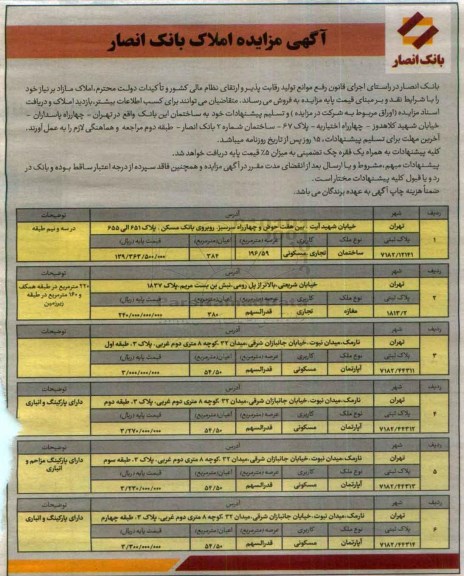 آگهی مزایده املاک بانک انصار
بانک انصار
بانک انصار در راستای اجرای قانون رفع موانع تولید رقابت پذیر و ارتقای نظام مالی کشور و تأکیدات دولت محترم، املاک مازاد بر نیاز خود
را با شرایط نقد و بر مبنای قیمت پایه مزایده به فروش می رساند. متقاضیان می توانند برای کسب اطلاعات بیشتر، بازدید املاک و دریافت
اسناد مزایده (اوراق مربوط به شرکت در مزایده) و تسلیم پیشنهادات خود به ساختمان این بانک واقع در تهران - چهارراه پاسداران -
خیابان شهید کلاهدوز - چهارراه اختیاریه - پلاک ۶۷ - ساختمان شماره ۲ بانک انصار - طبقه دوم مراجعه و هماهنگی لازم را به عمل آورند.
آخرین مهلت برای تسلیم پیشنهادات، ۱۵ روز پس از تاریخ روزنامه میباشد.
کلیه پیشنهادات به همراه یک فقره چک تضمینی به میزان ۵٪ قیمت پایه دریافت خواهد شد.
پیشنهادات مبهم، مشروط و یا ارسال بعد از انقضای مدت مقرر در آگهی مزایده و همچنین فاقد سپرده از درجه اعتبار ساقط بوده و بانک در
رد و یا قبول کلیه پیشنهادات مختار است.
ضمناً هزینه چاپ آگهی به عهده برندگان می باشد.
ردیف شهر آدرس توضیحات
۱ تهران خیابان شهید آیت . بین هفت حوض و چهارراه سرسبز . روبروی بانک مسکن . پلاک ۶۵۱ الی ۶۵۵ در سه و نیم طبقه
پلاک ثبتی نوع ملک کاربری عرصه (مترمربع) اعیان (مترمربع) قیمت پایه (ریال)
۷۱۸۲/۱۲۱۲۱ ساختمان تجاری .مسکونی ۱۹۶/۵۹ ۳۸۴ ۱۲۹/۳۶۳/۵۰۰/۰۰۰
ردیف شهر آدرس توضیحات
۲ تهران خیابان شریعتی،بالاتر از پل رومی،نبش بن بست مریم،پلاک ۱۸۳۷ ۲۲۰ مترمربع در طبقه همکف و ۱۶۰ مترمربع در طبقه زیرزمین
پلاک ثبتی نوع ملک کاربری عرصه (مترمربع) اعیان (مترمربع) قیمت پایه (ریال)
۱۸۱۳/۲ مغازه تجاری قدرالسهم ۳۸۰ ۲۴۰/۰۰۰/۰۰۰/۰۰۰
ردیف شهر آدرس توضیحات
۳ تهران نارمک،میدان نبوت،خیابان جانبازان شرقی،میدان ۳۲ ،کوچه ۸ متری دوم غربی، پلاک ۳، طبقه اول
پلاک ثبتی نوع ملک کاربری عرصه (مترمربع) اعیان (مترمربع) قیمت پایه (ریال)
۷۱۸۲/۴۴۳۱۱ آپارتمان مسکونی قدرالسهم ۵۴/۵۰ ۳/۰۰۰/۰۰۰/۰۰۰
ردیف شهر آدرس توضیحات
۴ تهران نارمک،میدان نبوت،خیابان جانبازان شرقی،میدان ۳۲ ،کوچه ۸ متری دوم غربی، پلاک ۳، طبقه دوم دارای پارکینگ و انباری
پلاک ثبتی نوع ملک کاربری عرصه (مترمربع) اعیان (مترمربع) قیمت پایه (ریال)
۷۱۸۲/۴۴۳۱۲ آپارتمان مسکونی قدرالسهم ۵۴/۵۰ ۳/۲۷۰/۰۰۰/۰۰۰
ردیف شهر آدرس توضیحات
۵ تهران نارمک،میدان نبوت،خیابان جانبازان شرقی،میدان ۳۲ ،کوچه ۸ متری دوم غربی، پلاک ۳، طبقه سوم دارای پارکینگ مزاحم و انباری
پلاک ثبتی نوع ملک کاربری عرصه (مترمربع) اعیان (مترمربع) قیمت پایه (ریال)
۷۱۸۲/۴۴۳۱۳ آپارتمان مسکونی قدرالسهم ۵۴/۵۰ ۳/۲۳۰/۰۰۰/۰۰۰
ردیف شهر آدرس توضیحات
۶ تهران نارمک،میدان نبوت،خیابان جانبازان شرقی،میدان ۳۲ ،کوچه ۸ متری دوم غربی، پلاک ۳، طبقه چهارم دارای پارکینگ و انباری
پلاک ثبتی نوع ملک کاربری عرصه (مترمربع) اعیان (مترمربع) قیمت پایه (ریال)
۷۱۸۲/۴۴۳۱۴ آپارتمان مسکونی قدرالسهم ۵۴/۵۰ ۳/۳۰۰/۰۰۰/۰۰۰